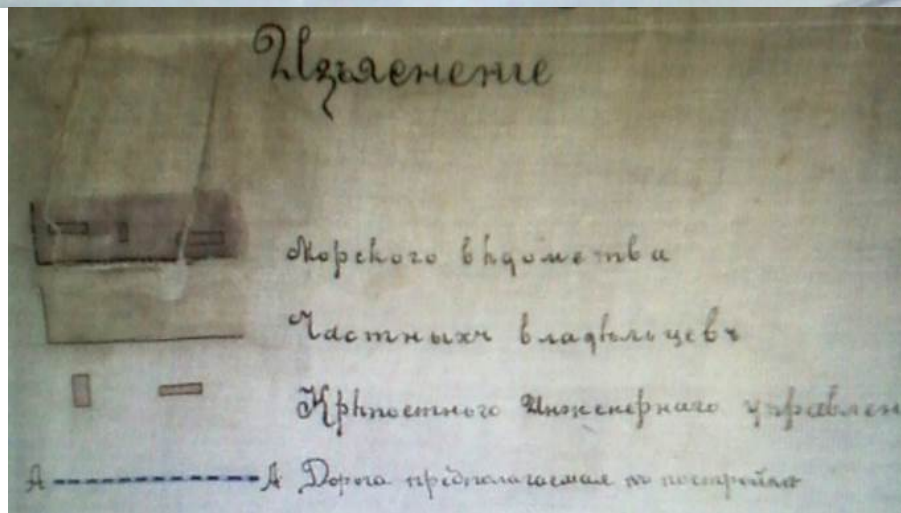 Изъяснение
Морского вѣдомства
Частныхъ владѣльцевъ
Крѣпостного Инженернаго управлен
А А Дорога предполагаемая къ постройкѣ